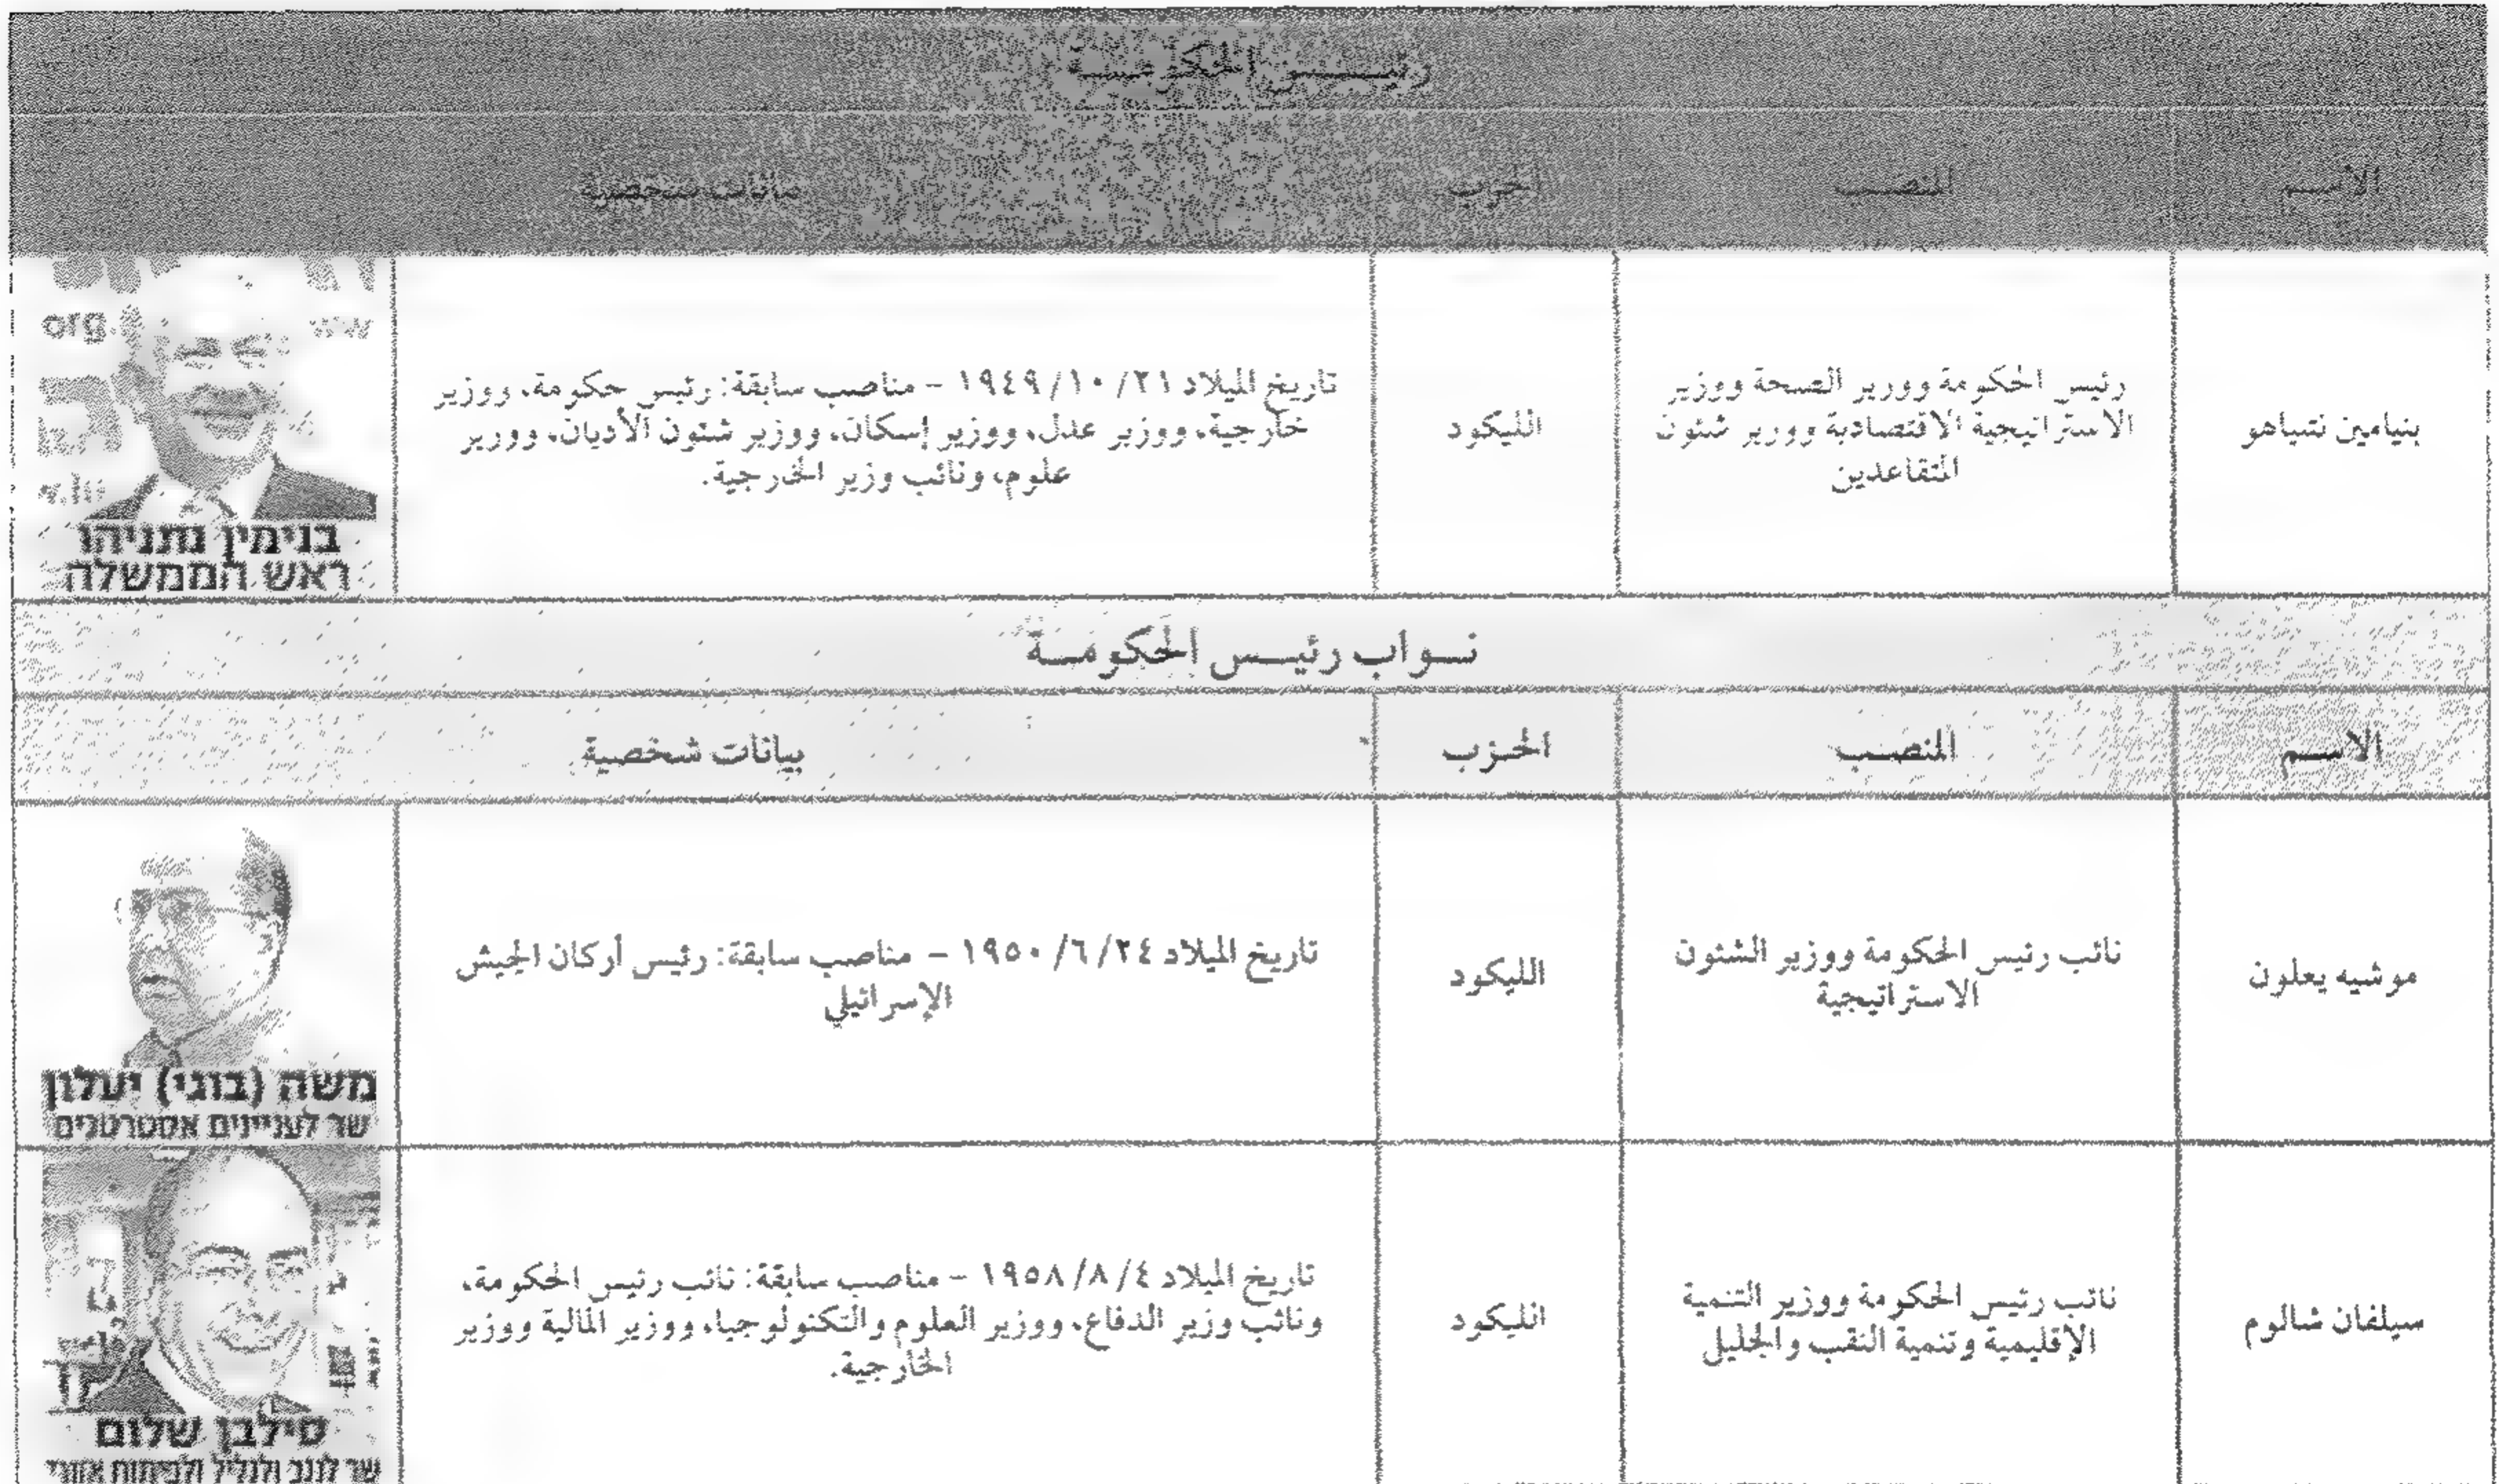 رئيـــس الحكومـــة
الاســـم المنصـــب الحـزب بيانات شخصية
بنيامين نتنياهو
رئيس الحكومة ووزير الصحة ووزير
الاستراتيجية الاقتصادية ووزير شئون
المتقاعدين
الليكود
تاريخ الميلاد ٢١/ ١٠/ ١٩٤٩ – مناصب سابقة: رئيس حكومة، ووزير
خارجية، ووزير عدل، ووزير إسكان، ووزير شئون الأديان، ووزير
علوم، ونائب وزير الخارجية.
org.
בנימין נתניהו
ראש הממשלה
نـــواب رئيـــس الحكومـــة
الاســـم المنصـــب الحـزب بيانات شخصية
موشيه يعلون
نائب رئيس الحكومة ووزير الشئون
الاستراتيجية
الليكود
تاريخ الميلاد ٢٤/ ٦/ ١٩٥٠ – مناصب سابقة: رئيس أركان الجيش
الإسرائيلي
משה (בוגי) יעלון
שר לעניינים אסטרטגים
سيلفان شالوم
نائب رئيس الحكومة ووزير التنمية
الإقليمية وتنمية النقب والجليل
الليكود
تاريخ الميلاد ٤/ ٨/ ١٩٥٨ – مناصب سابقة: نائب رئيس الحكومة،
ونائب وزير الدفاع، ووزير العلوم والتكنولوجيا، ووزير المالية ووزير
الخارجية.
סילבן שלום
שר לנגב ולגליל ולפיתוח אזורי